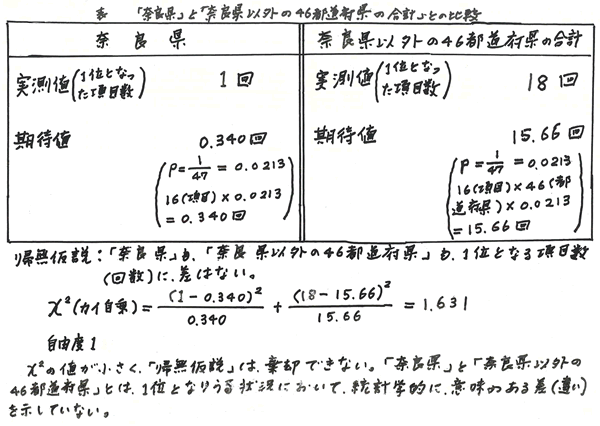 表 「奈良県」と「奈良県以外の46都道府県の合計」との比較
奈良県
奈良県以外の46都道府県の合計
実測値(1位となった項目数) 1回
実測値(1位となった項目数) 18回
期待値 0.340回
(P=1/47=0.0213
16(項目)×0.0213
=0.340回)
期待値 15.66回
(P=1/47=0.0213
16(項目)×46(都
道府県)×0.0213
=15.66回)
帰無仮説:「奈良県」も、「奈良県以外の46都道府県」も、1位となる項目数
(回数)に、差はない。
χ²(カイ自乗)=(1-0.340)²/0.340+(18-15.66)²/15.66=1.631
自由度1
χ²の値が小さく、「帰無仮説」は、棄却できない。「奈良県」と「奈良県以外の
46都道府県」とは、1位となりうる状況において、統計学的に、意味のある差(違い)
を示していない。